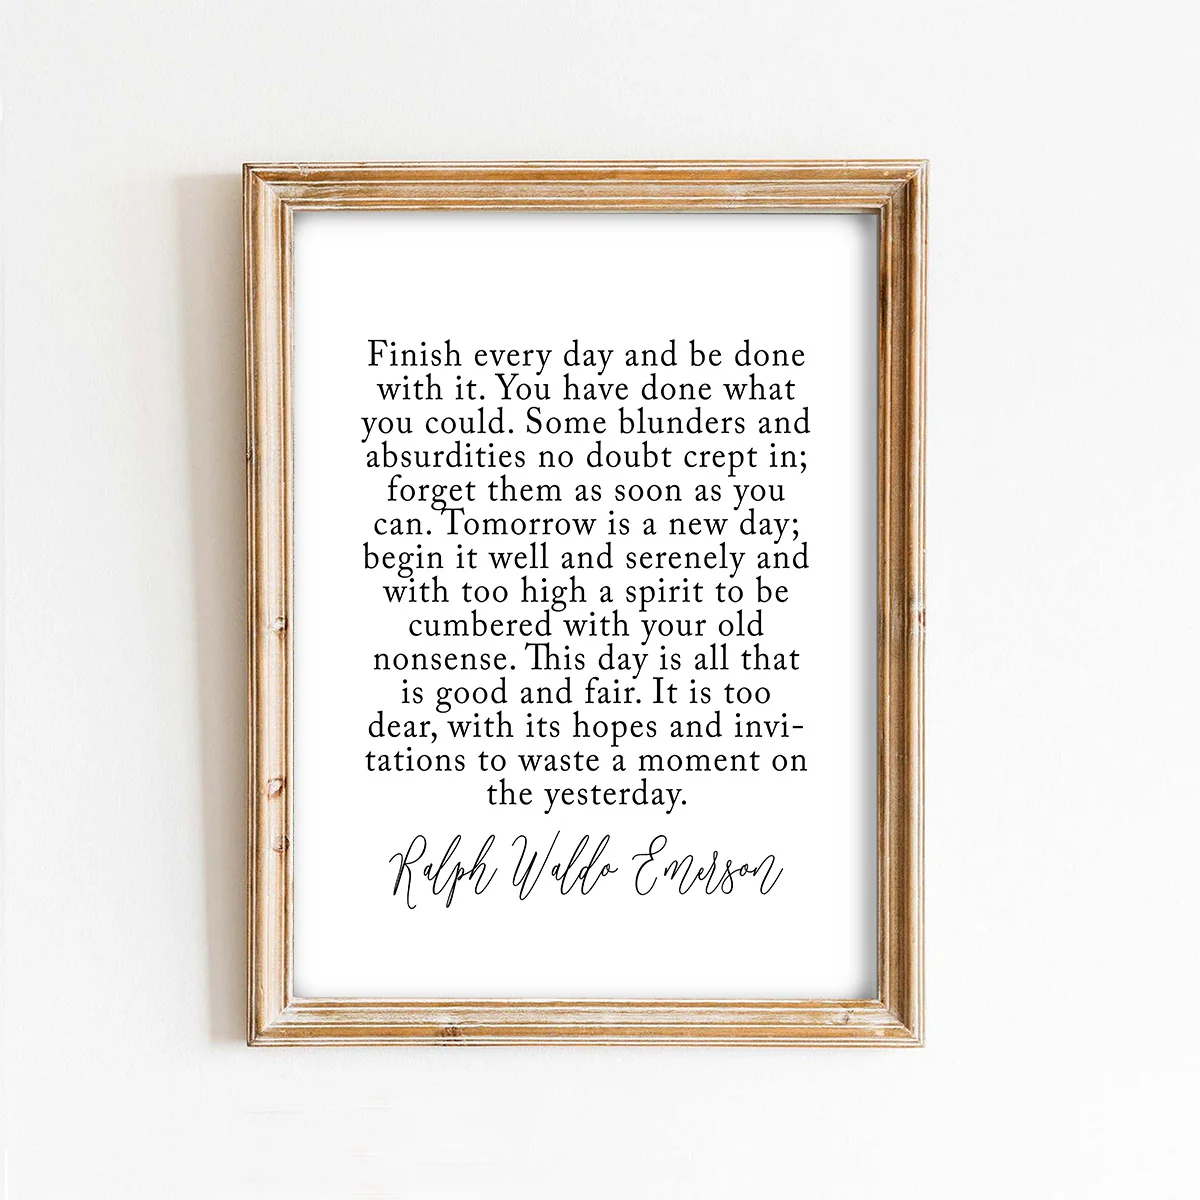 Finish every day and be done
with it. You have done what
you could. Some blunders and
absurdities no doubt crept in;
forget them as soon as you
can. Tomorrow is a new day;
begin it well and serenely and
with too high a spirit to be
cumbered with your old
nonsense. This day is all that
is good and fair. It is too
dear, with its hopes and invi-
tations to waste a moment on
the yesterday.
Ralph Waldo Emerson